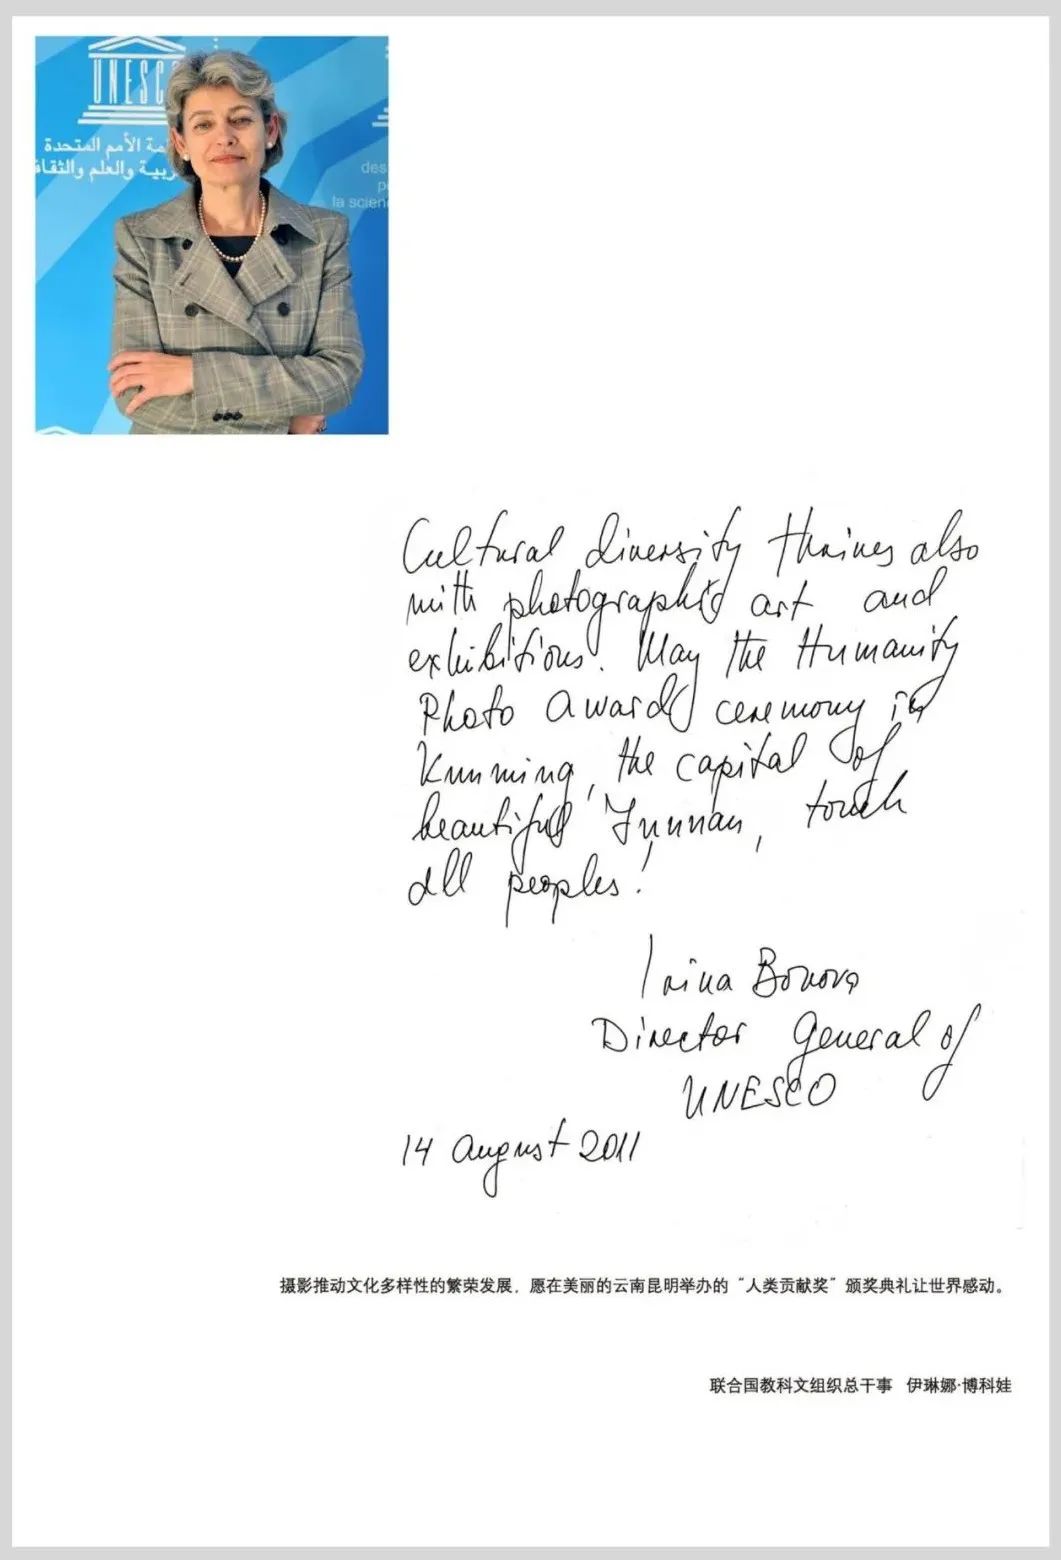 UNESC
منظمة الأمم المتحدة
للتربية والعلم والثقافة
des
la scien
Cultural diversity thrives also
with photographic art and
exhibitions. May the Humanity
Photo Awards ceremony in
Kunming, the capital of
beautiful Yunnan, touch
all peoples!
Irina Bokova
Director General of
UNESCO
14 August 2011
摄影推动文化多样性的繁荣发展，愿在美丽的云南昆明举办的“人类贡献奖”颁奖典礼让世界感动。
联合国教科文组织总干事 伊琳娜·博科娃